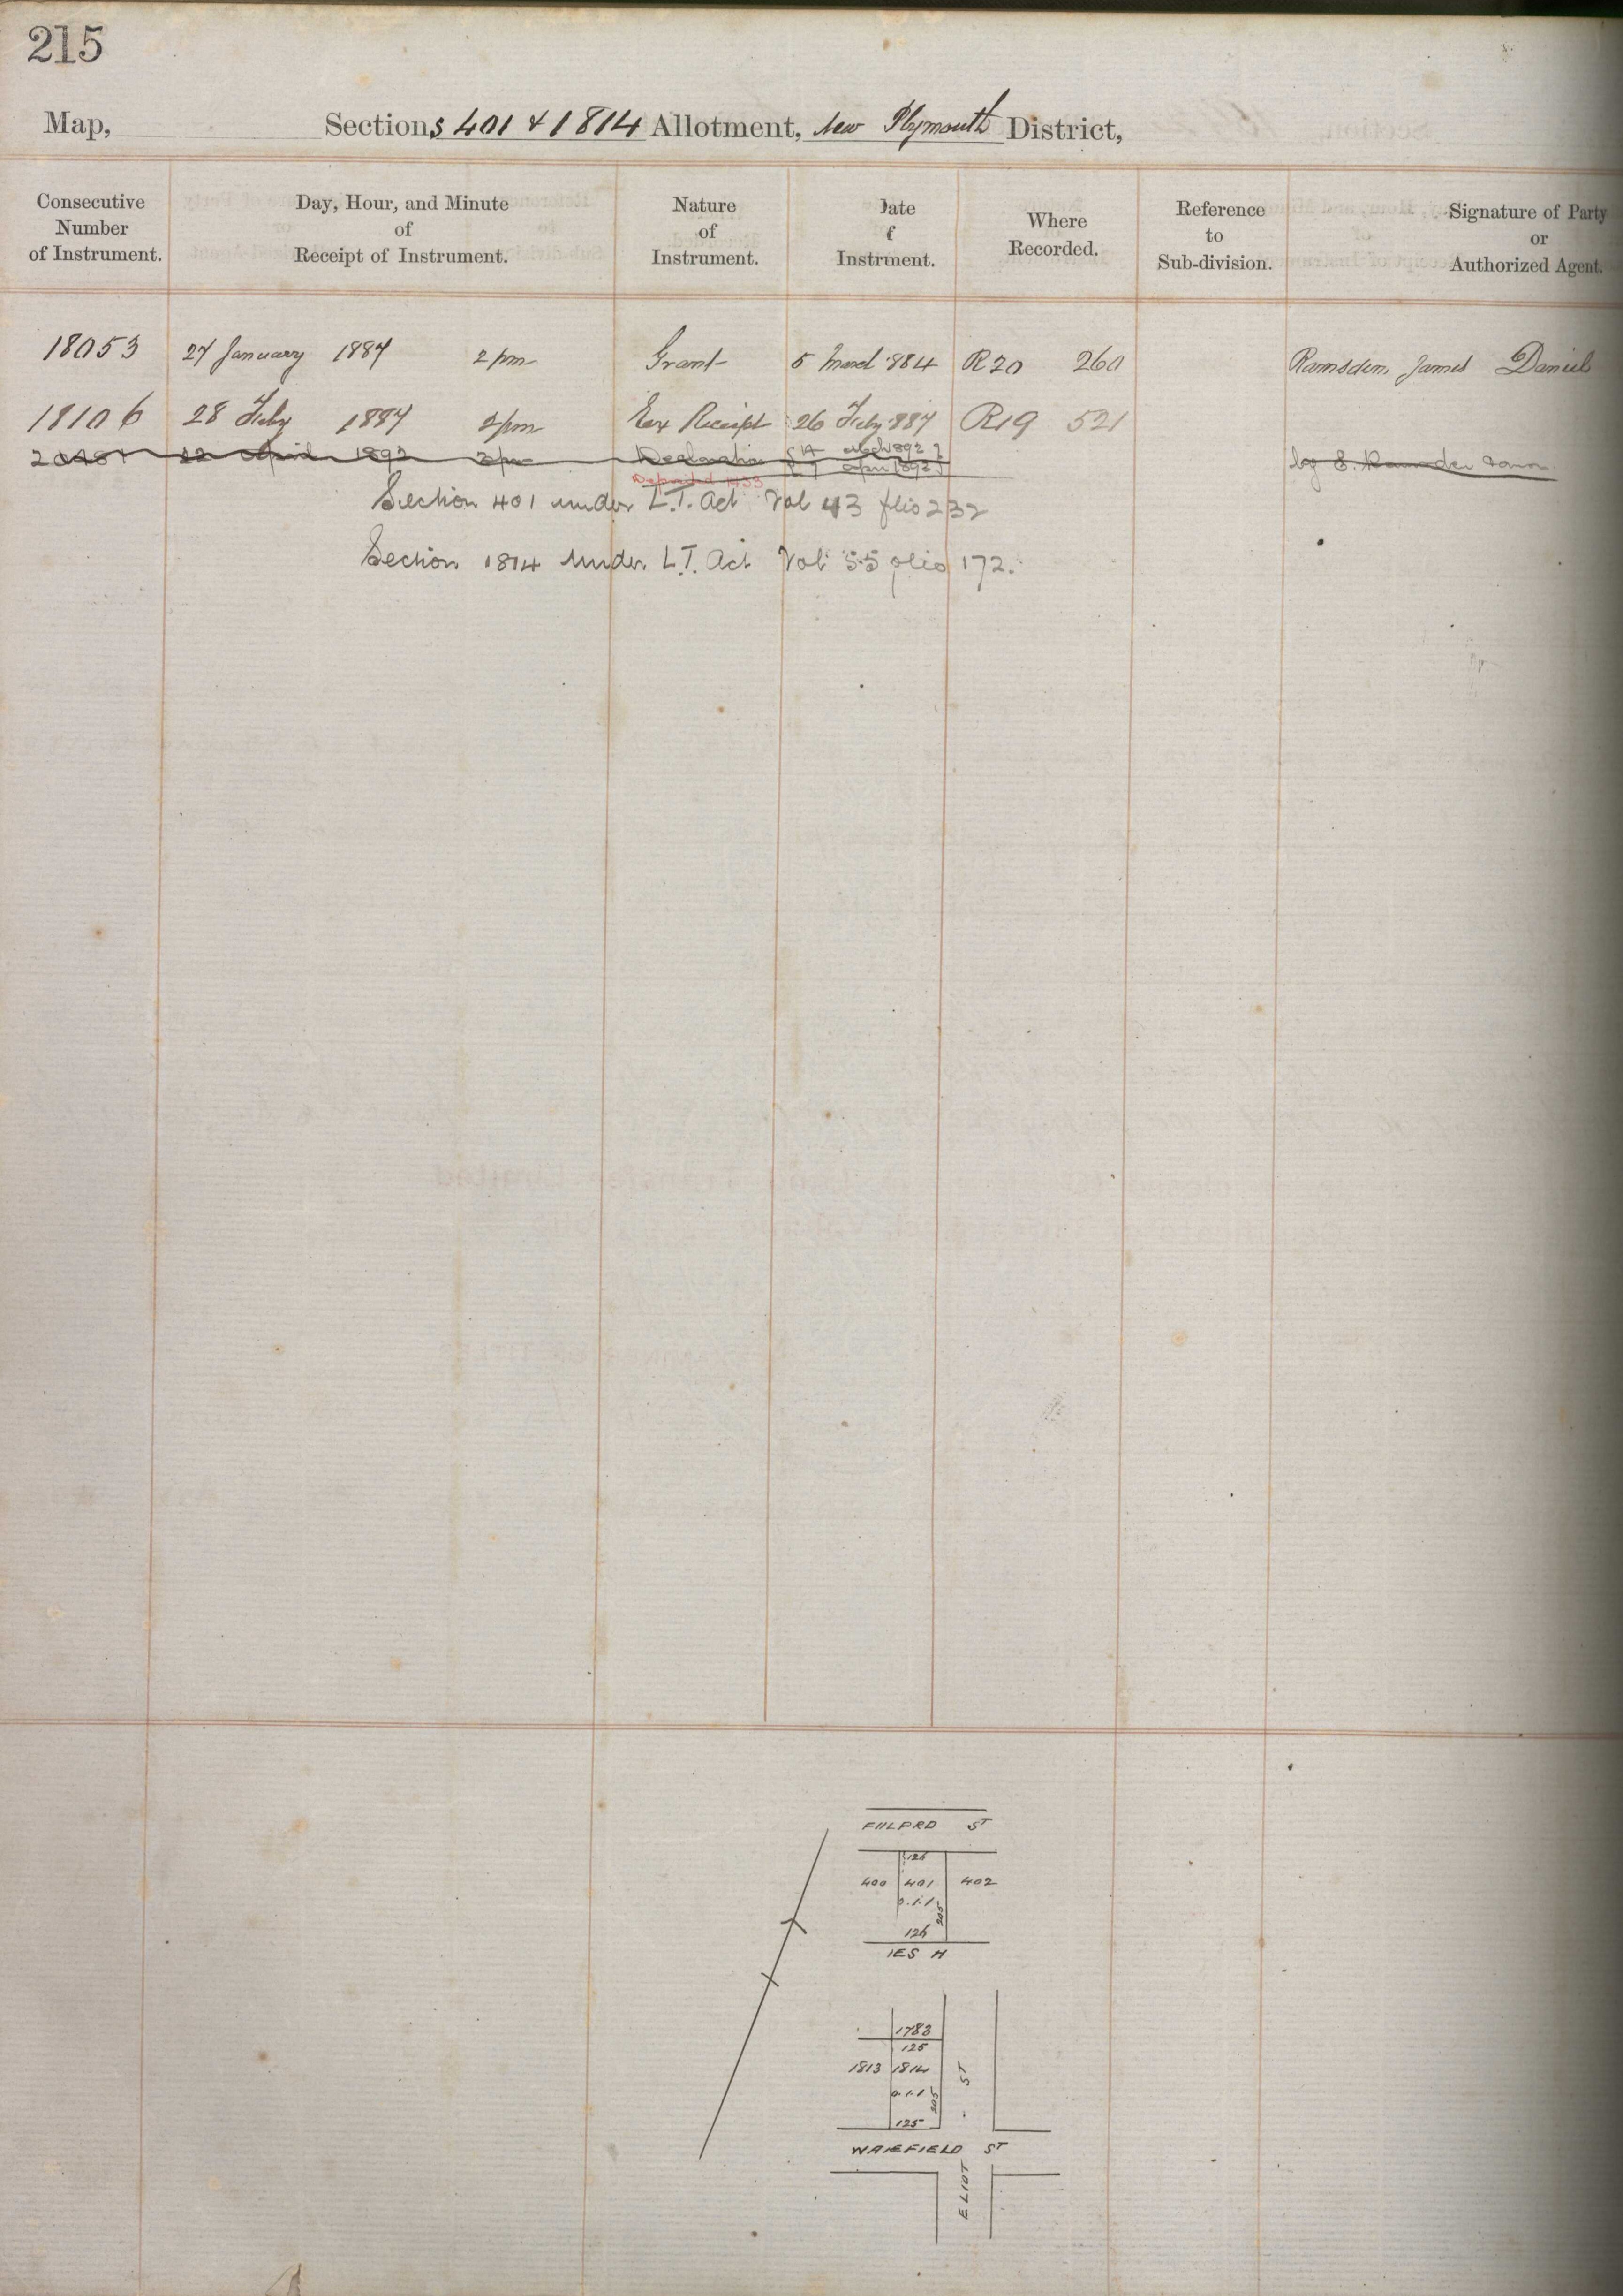 215
Map, Sections 401 & 1814 Allotment, New Plymouth District,
Consecutive Number of Instrument.
Day, Hour, and Minute of Receipt of Instrument.
Nature of Instrument.
Date of Instrument.
Where Recorded.
Reference to Sub-division.
Signature of Party or Authorized Agent.
18053 27 January 1887 2 pm Grant 5 March 1884 R20 260 Ramsden James Daniel
18106 28 Feby 1887 2 pm Receipt 26 Feby 887 R19 521
22 April 1892 3 pm Declaration 14 March 1892
7 April 1892
Deposited
Section 401 under L.T. Act Vol 43 folio 232
Section 1814 under L.T. Act Vol 55 folio 172.
ST
126
400 401 402
0.1.1
205
126
1783
125
1813 1814
0.1.1
205
ST
125
ST
ELIOT